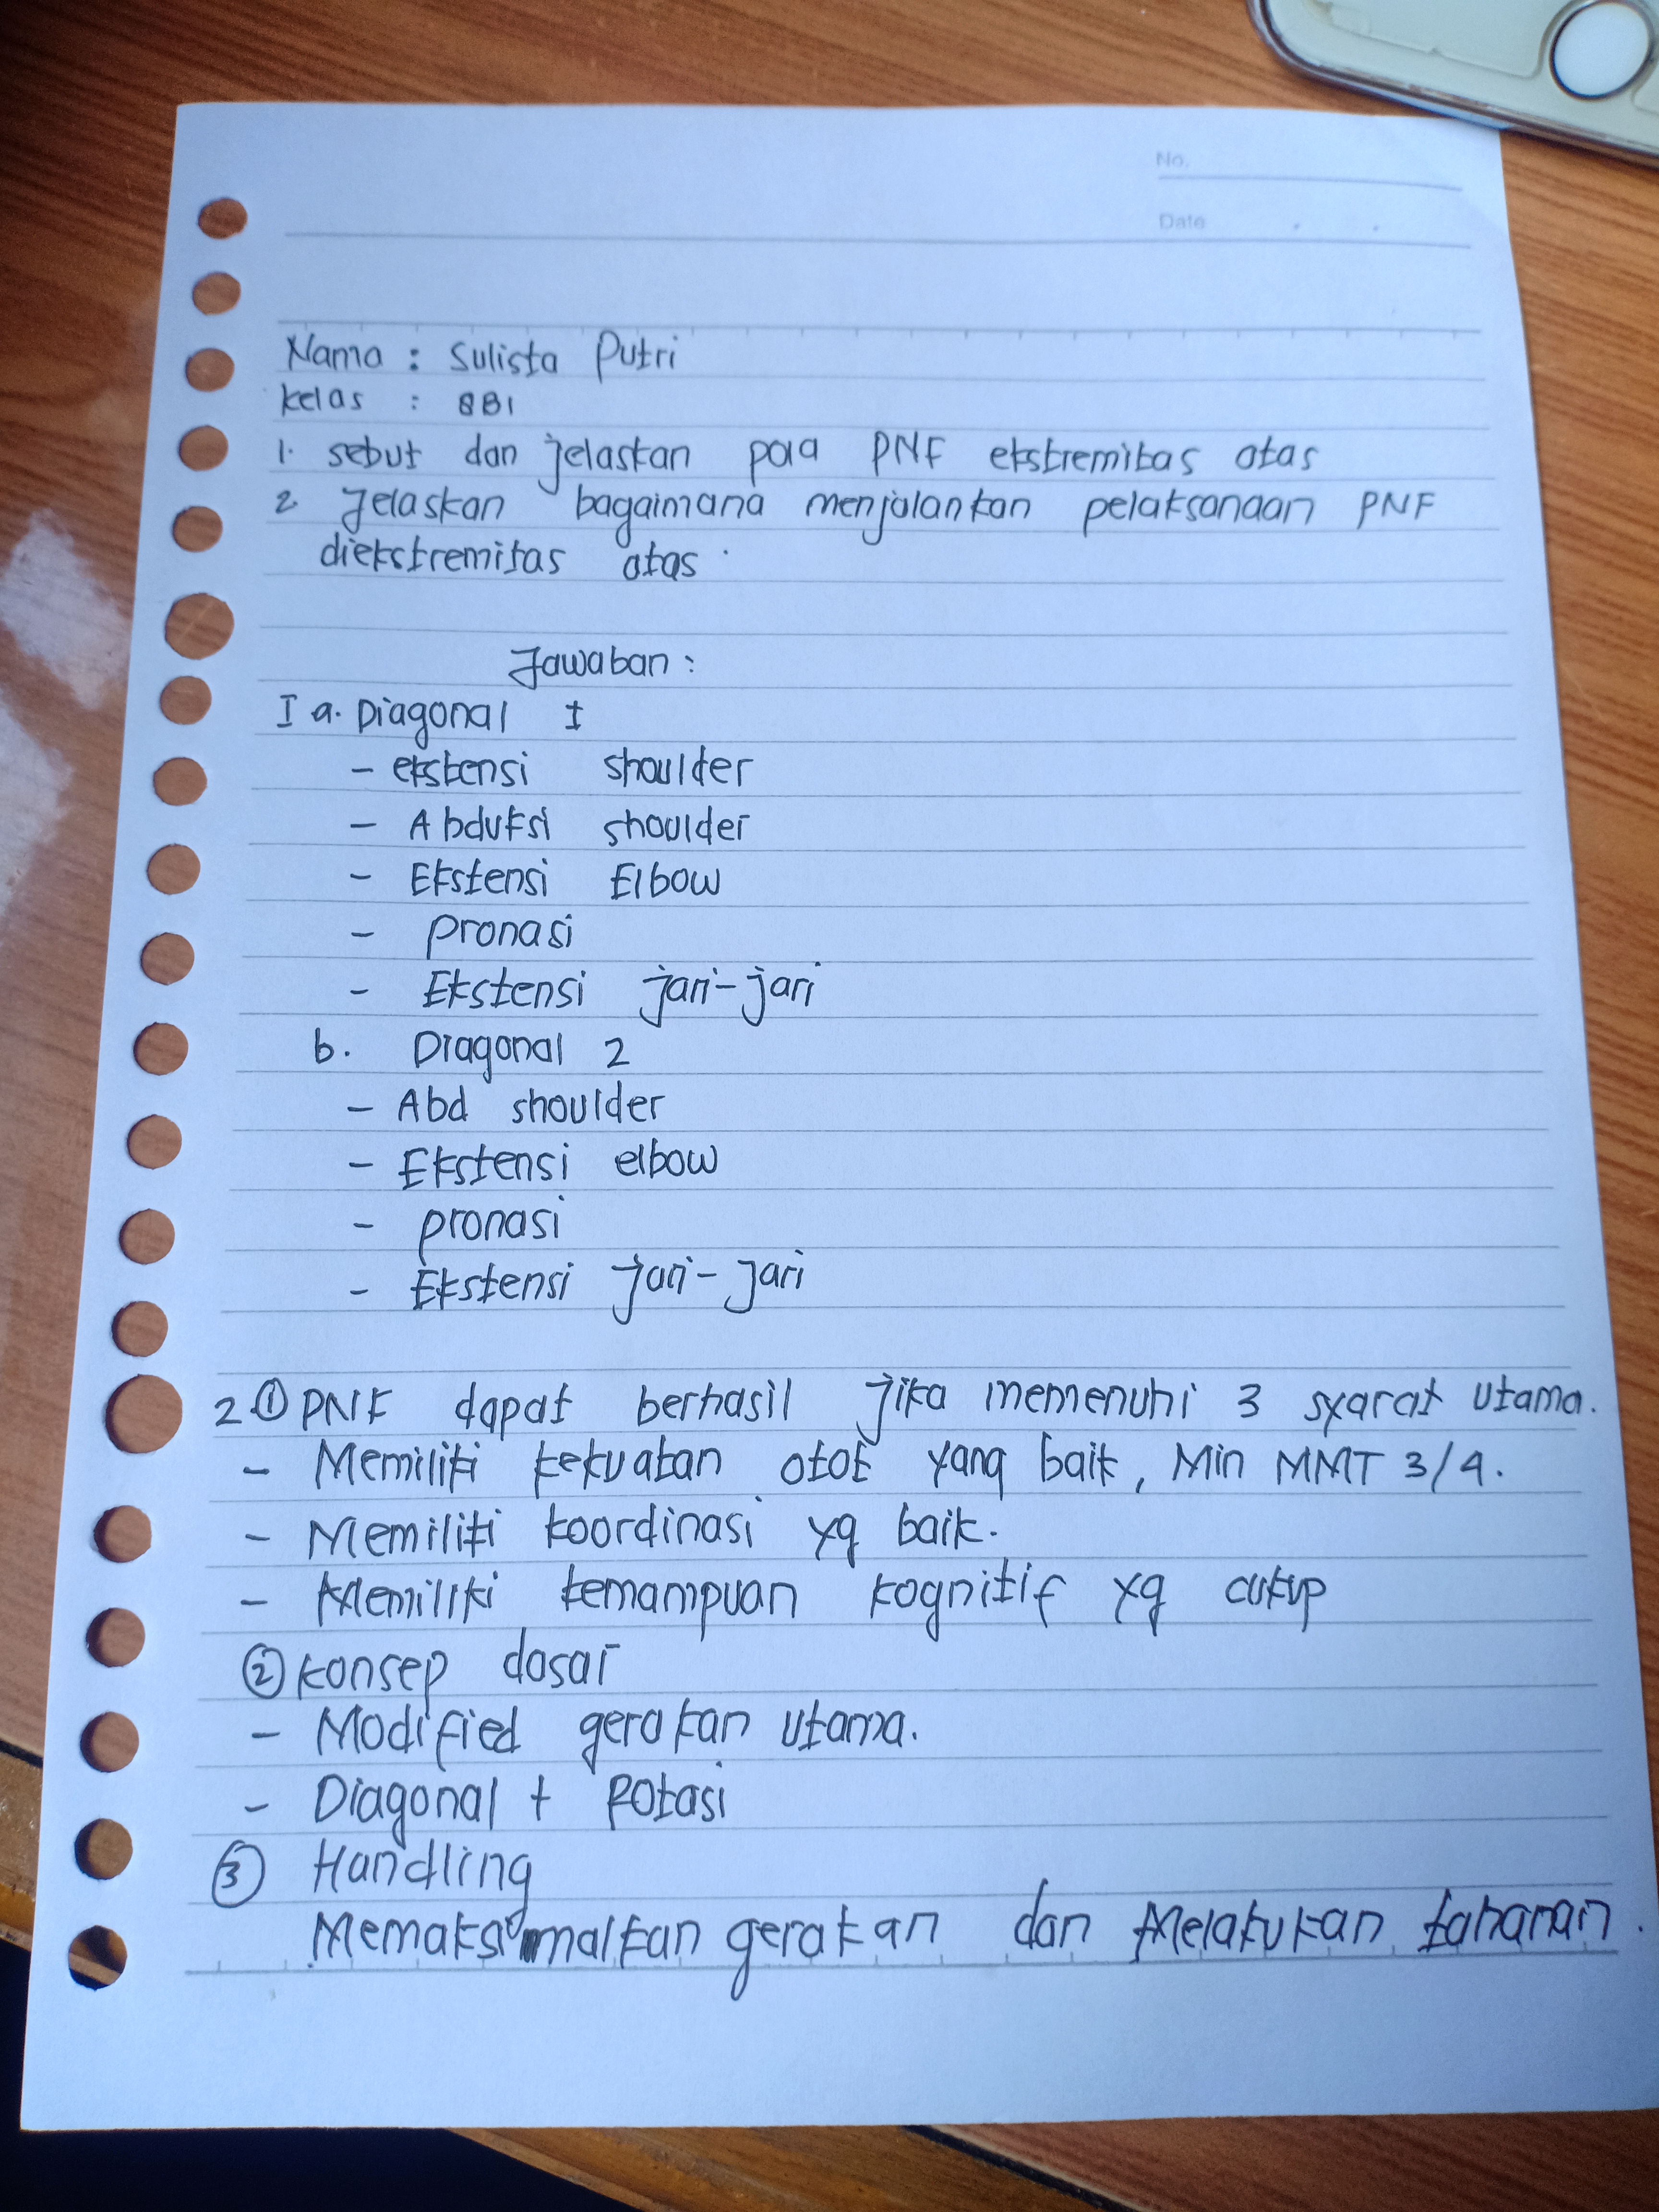 No.
Date
Nama : Sulista Putri
Kelas : 8B1
1. sebut dan jelaskan pola PNF ekstremitas atas
2. Jelaskan bagaimana menjalankan pelaksanaan PNF
diekstremitas atas.
Jawaban :
I a. Diagonal I
- ekstensi shoulder
- Abduksi shoulder
- Ekstensi Elbow
- pronasi
- Ekstensi jari-jari
b. Diagonal 2
- Abd shoulder
- Ekstensi elbow
- pronasi
- Ekstensi jari-jari
2 ① PNF dapat berhasil jika memenuhi 3 syarat utama.
- Memiliki kekuatan otot yang baik, Min MMT 3/4.
- Memiliki koordinasi yg baik.
- Memiliki kemampuan kognitif yg cukup
② Konsep dasar
- Modified gerakan utama.
- Diagonal + Rotasi
③ Handling
Memaksimalkan gerakan dan Melakukan tahanan.